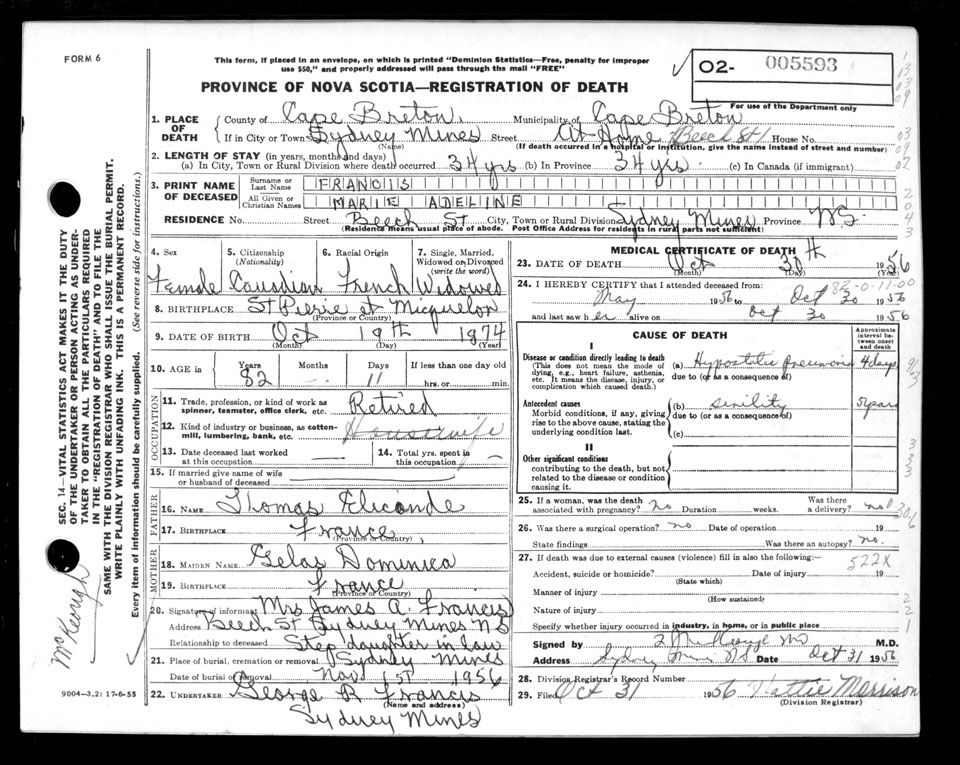 FORM 6
This form, if placed in an envelope, on which is printed "Dominion Statistics—Free, penalty for improper
use $50," and properly addressed will pass through the mail "FREE"
02- 005593
For use of the Department only
PROVINCE OF NOVA SCOTIA—REGISTRATION OF DEATH
1. PLACE OF DEATH
County of Cape Breton, Municipality of Cape Breton
If in City or Town Sydney Mines Street At Home Beech St House No.
(Name) (If death occurred in a hospital or institution, give the name instead of street and number)
2. LENGTH OF STAY (in years, months and days)
(a) In City, Town or Rural Division where death occurred 34 yrs (b) In Province 34 yrs. (c) In Canada (if immigrant)
3. PRINT NAME OF DECEASED
Surname or Last Name FRANCIS
All Given or Christian Names MARIE ADELINE
RESIDENCE No. Street Beech St City, Town or Rural Division Sydney Mines Province N.S.
(Residence means usual place of abode. Post Office Address for residents in rural parts not sufficient)
4. Sex 5. Citizenship 6. Racial Origin 7. Single, Married,
(Nationality) Widowed or Divorced
(write the word)
Female Canadian French Widowed
8. BIRTHPLACE St Pierre et Miquelon
(Province or Country)
9. DATE OF BIRTH Oct 19th 1874
(Month) (Day) (Year)
10. AGE Years Months Days If less than one day old
82 — 11 hrs. or min.
OCCUPATION
11. Trade, profession, or kind of work as
spinner, teamster, office clerk, etc. Retired
12. Kind of industry or business, as cotton-
mill, lumbering, bank, etc. Housewife
13. Date deceased last worked
at this occupation —
14. Total yrs. spent in
this occupation —
15. If married give name of wife
or husband of deceased
FATHER
16. NAME Thomas
17. BIRTHPLACE France
(Province or Country)
MOTHER
18. MAIDEN NAME Dominica
19. BIRTHPLACE France
(Province or Country)
20. Signature of informant Mrs James A. Francis
Address Beech St Sydney Mines N S
Relationship to deceased Step daughter in law
21. Place of burial, cremation or removal Sydney Mines
Date of burial or removal Nov 1st 1956
22. UNDERTAKER George R Francis
(Name and address)
Sydney Mines
MEDICAL CERTIFICATE OF DEATH
23. DATE OF DEATH Oct 30th 1956
(Month) (Day) (Year)
24. I HEREBY CERTIFY that I attended deceased from: 82-0-11-00
May 1956 to Oct 30 1956
and last saw her alive on Oct 30 1956
CAUSE OF DEATH
Approximate interval between onset and death
I
Disease or condition directly leading to death
(This does not mean the mode of
dying, e.g., heart failure, asthenia,
etc. It means the disease, injury, or
complication which caused death.)
(a) Hypostatic pneumonia 4 days
due to (or as a consequence of)
Antecedent causes
Morbid conditions, if any, giving
rise to the above cause, stating the
underlying condition last.
(b) senility
due to (or as a consequence of)
(c)
II
Other significant conditions
contributing to the death, but not
related to the disease or condition
causing it.
25. If a woman, was the death
associated with pregnancy? no Duration weeks. Was there a delivery? no
26. Was there a surgical operation? no Date of operation 19
State findings Was there an autopsy? no.
27. If death was due to external causes (violence) fill in also the following:—
522X
Accident, suicide or homicide? Date of injury 19
(State which)
Manner of injury
(How sustained)
Nature of injury
Specify whether injury occurred in industry, in home, or in public place
Signed by M.D.
Address Sydney Mines N.S Date Oct 31 1956
28. Division Registrar's Record Number
29. Filed Oct 31 1956 Hattie Morrison
(Division Registrar)
SEC. 14—VITAL STATISTICS ACT MAKES IT THE DUTY
OF THE UNDERTAKER OR PERSON ACTING AS UNDER-
TAKER TO OBTAIN ALL THE PARTICULARS REQUIRED
IN THE "REGISTRATION OF DEATH" AND TO FILE THE
SAME WITH THE DIVISION REGISTRAR WHO SHALL ISSUE THE BURIAL PERMIT.
WRITE PLAINLY WITH UNFADING INK. THIS IS A PERMANENT RECORD.
Every item of information should be carefully supplied. (See reverse side for instructions.)
McKeough
9004—3.2: 17-6-55